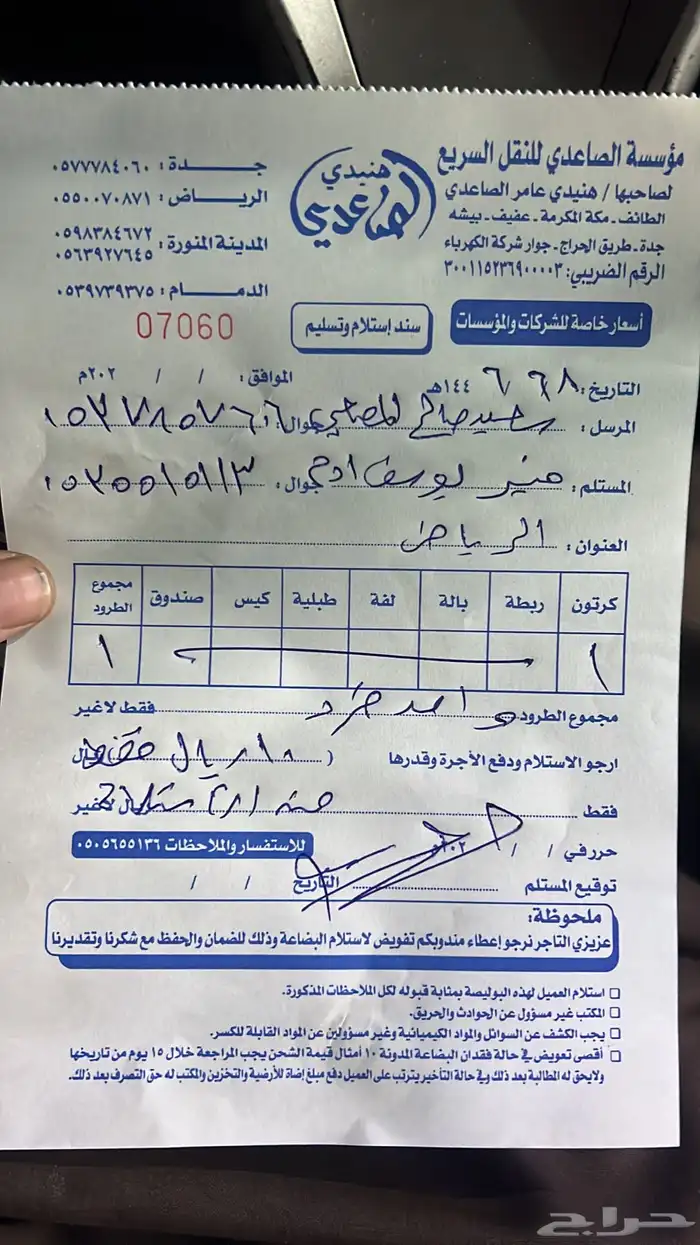 مؤسسة الصاعدي للنقل السريع
لصاحبها / هنيدي عامر الصاعدي
الطائف - مكة المكرمة - عفيف - بيشه
جدة - طريق الحراج - جوار شركة الكهرباء
الرقم الضريبي: ٣٠٠١١٥٢٣٦٩٠٠٠٠٣
هنيدي
الصاعدي
جــدة : ٠٥٧٧٧٨٤٠٦٠
الرياض : ٠٥٥٠٠٧٠٨٧١
المدينة المنورة : ٠٥٩٨٣٨٤٦٧٢
٠٥٦٣٩٢٧٦٤٥
الدمــام : ٠٥٣٩٧٣٩٣٧٥
أسعار خاصة للشركات والمؤسسات
سند إستلام وتسليم
07060
التاريخ: ٢٨ / ٦ / ١٤٤هـ الموافق: / / ٢٠٢م
المرسل: سعيد صالح جوال:
المستلم: منير يوسف ادم جوال: ٠٥٣٥٥١٥١١٣
العنوان: الرياض
كرتون ربطة بالة لفة طبلية كيس صندوق مجموع الطرود
١ ١
مجموع الطرود واحد طرد فقط لاغير
ارجو الاستلام ودفع الأجرة وقدرها ( ريال
فقط ريال لاغير
حرر في / / ٢٠٢م للاستفسار والملاحظات ٠٥٠٥٦٥٥١٣٦
توقيع المستلم التاريخ / /
ملحوظة:
عزيزي التاجر نرجو إعطاء مندوبكم تفويض لاستلام البضاعة وذلك للضمان والحفظ مع شكرنا وتقديرنا
استلام العميل لهذه البوليصة بمثابة قبوله لكل الملاحظات المذكورة.
المكتب غير مسؤول عن الحوادث والحريق.
يجب الكشف عن السوائل والمواد الكيميائية وغير مسؤولين عن المواد القابلة للكسر.
أقصى تعويض في حالة فقدان البضاعة المدونة ١٠ أمثال قيمة الشحن يجب المراجعة خلال ١٥ يوم من تاريخها
ولايحق له المطالبة بعد ذلك وفي حالة التأخير يترتب على العميل دفع مبلغ إضافة للأرضية والتخزين والمكتب له حق التصرف بعد ذلك.
حراج